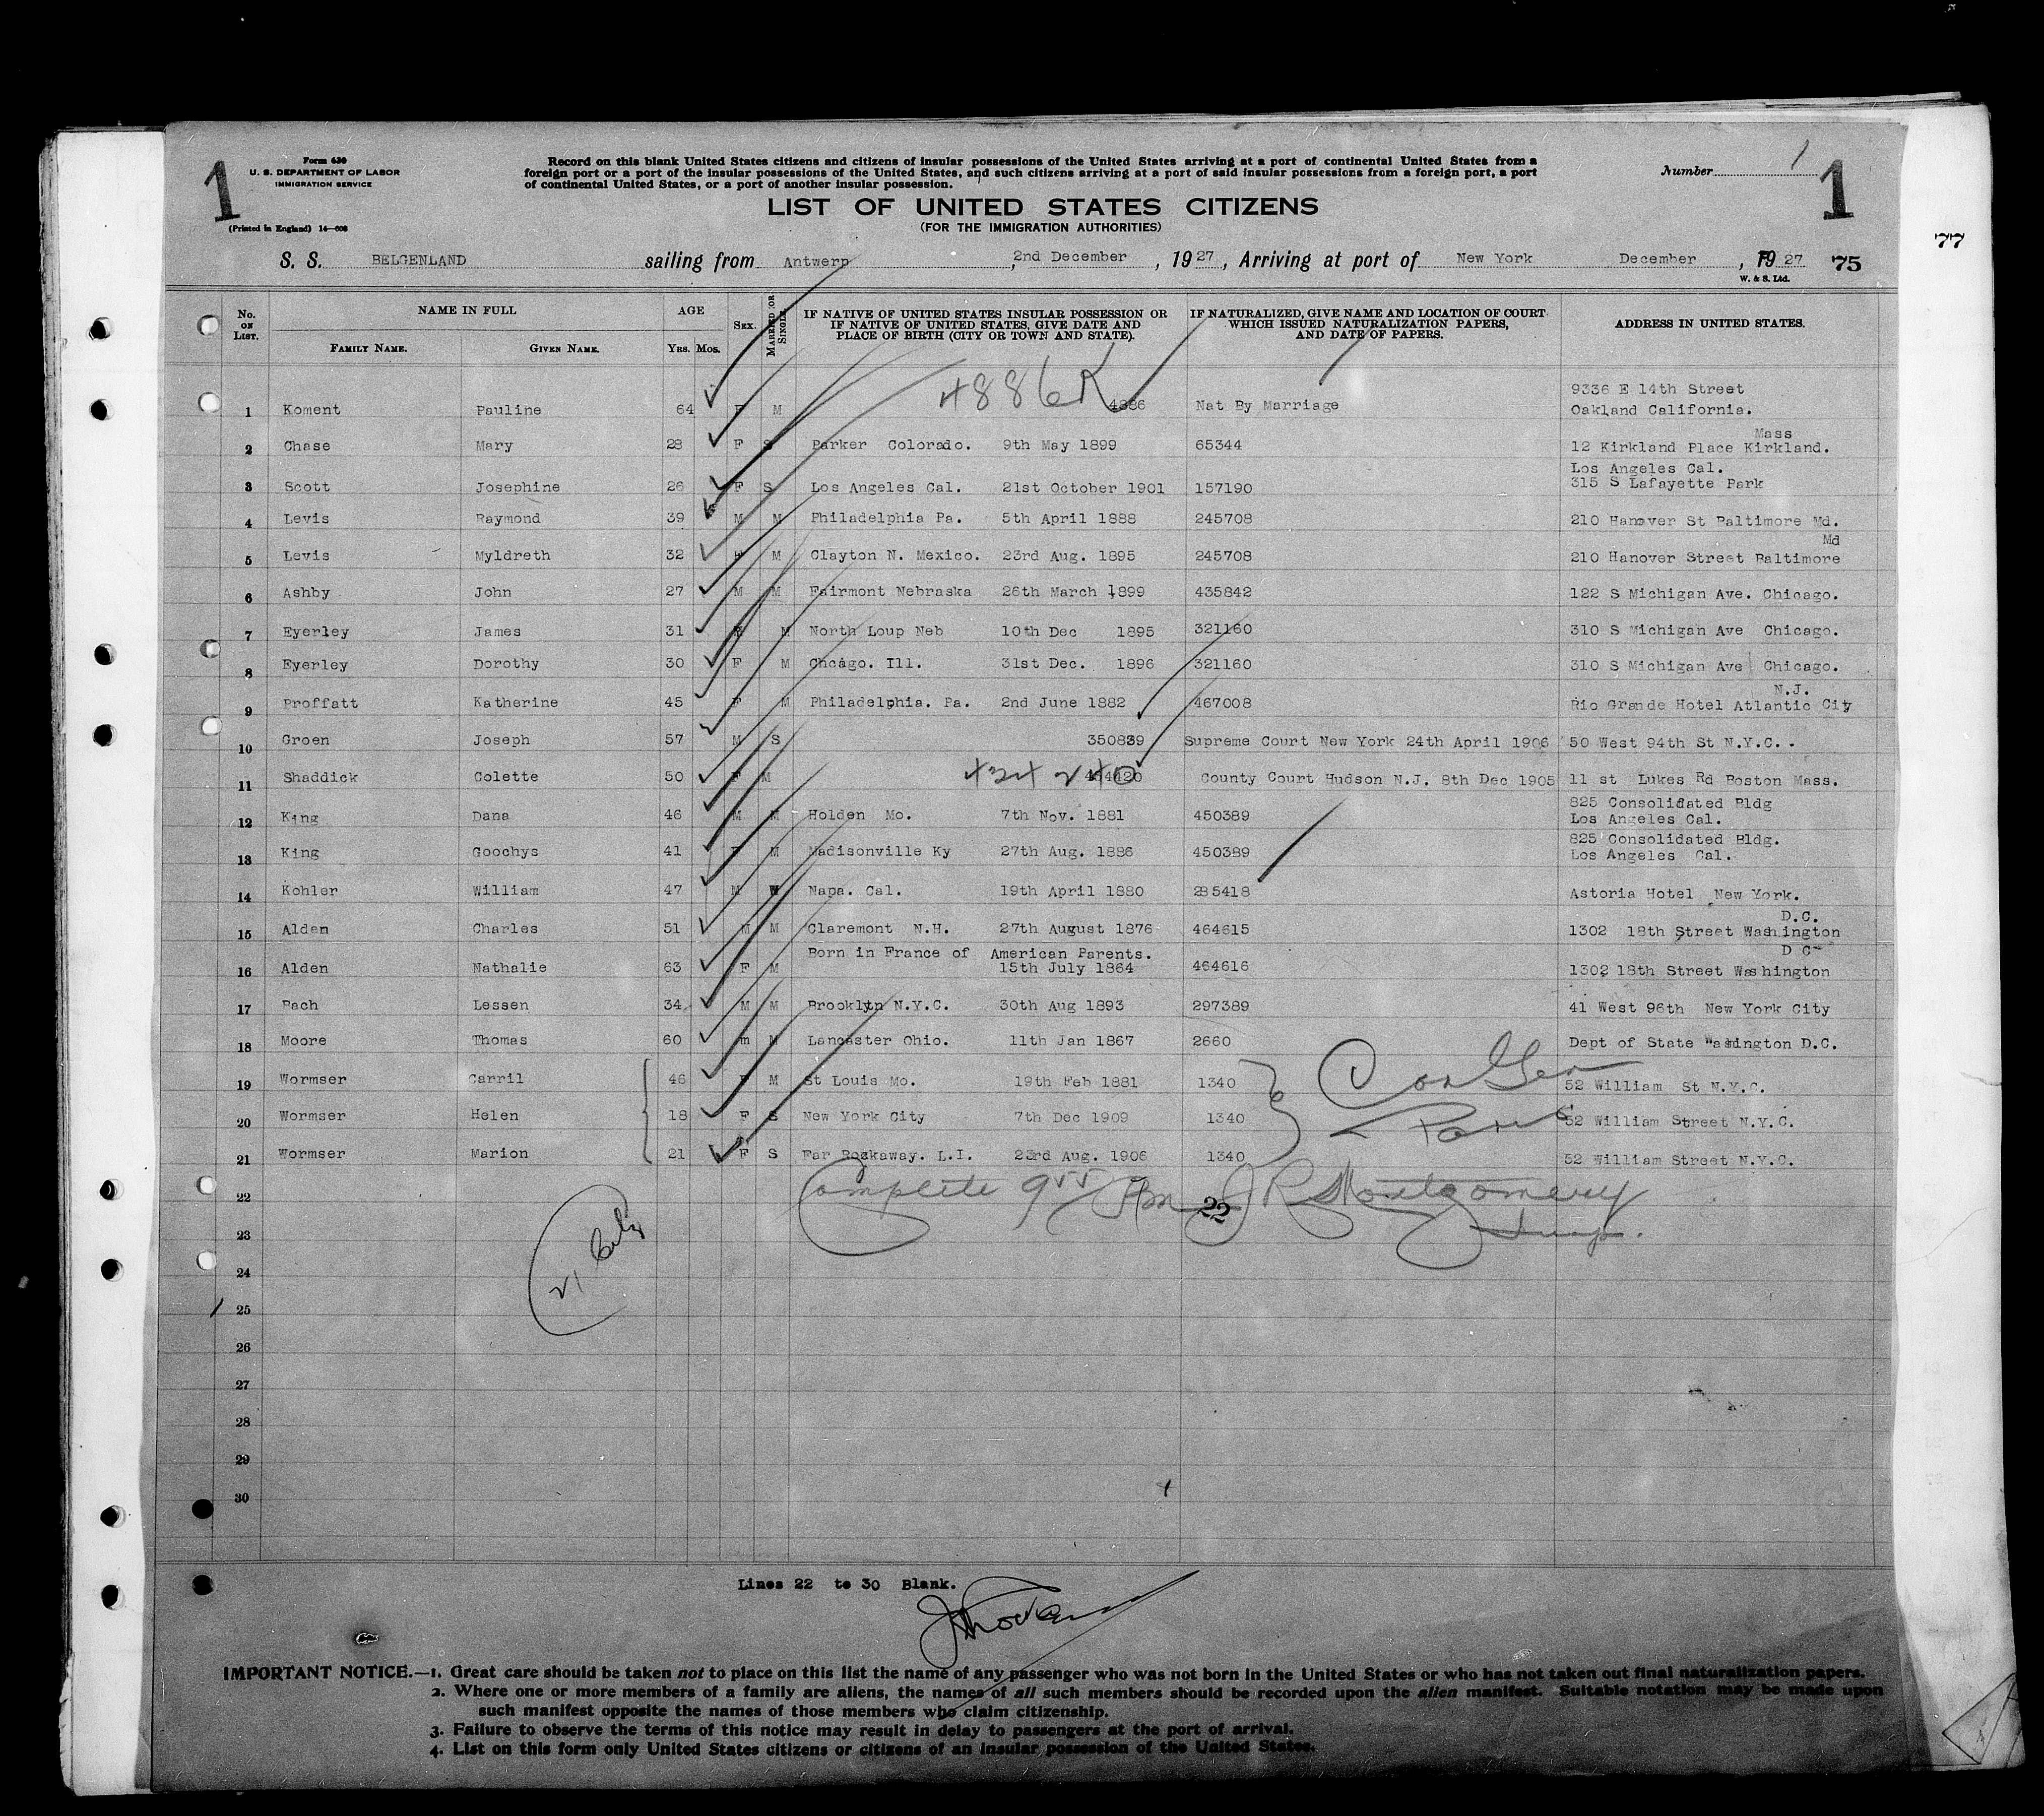 1
Form 630
U. S. DEPARTMENT OF LABOR
IMMIGRATION SERVICE
(Printed in England) 14—608
Record on this blank United States citizens and citizens of insular possessions of the United States arriving at a port of continental United States from a
foreign port or a port of the insular possessions of the United States, and such citizens arriving at a port of said insular possessions from a foreign port, a port
of continental United States, or a port of another insular possession.
Number 1
1
LIST OF UNITED STATES CITIZENS
(FOR THE IMMIGRATION AUTHORITIES)
77
S. S. BELGENLAND sailing from Antwerp, 2nd December, 1927, Arriving at port of New York December, 1927 75
W. & S. Ltd.
No. ON LIST. NAME IN FULL AGE SEX. MARRIED OR SINGLE IF NATIVE OF UNITED STATES INSULAR POSSESSION OR IF NATIVE OF UNITED STATES, GIVE DATE AND PLACE OF BIRTH (CITY OR TOWN AND STATE). IF NATURALIZED, GIVE NAME AND LOCATION OF COURT WHICH ISSUED NATURALIZATION PAPERS, AND DATE OF PAPERS. ADDRESS IN UNITED STATES.
FAMILY NAME. GIVEN NAME. YRS. MOS.
4886K
9336 E 14th Street
1 Koment Pauline 64 F M 4886 Nat By Marriage Oakland California.
Mass
2 Chase Mary 28 F S Parker Colorado. 9th May 1899 65344 12 Kirkland Place Kirkland.
Los Angeles Cal.
3 Scott Josephine 26 F S Los Angeles Cal. 21st October 1901 157190 315 S Lafayette Park
4 Levis Raymond 39 M M Philadelphia Pa. 5th April 1888 245708 210 Hanover St Baltimore Md.
Md
5 Levis Myldreth 32 F M Clayton N. Mexico. 23rd Aug. 1895 245708 210 Hanover Street Baltimore
6 Ashby John 27 M M Fairmont Nebraska 26th March 1899 435842 122 S Michigan Ave. Chicago.
7 Eyerley James 31 M M North Loup Neb 10th Dec 1895 321160 310 S Michigan Ave Chicago.
8 Eyerley Dorothy 30 F M Chcago. Ill. 31st Dec. 1896 321160 310 S Michigan Ave Chicago.
N.J.
9 Proffatt Katherine 45 F M Philadelphia. Pa. 2nd June 1882 467008 Rio Grande Hotel Atlantic City
10 Groen Joseph 57 M S 350839 Supreme Court New York 24th April 1906 50 West 94th St N.Y.C.
11 Shaddick Colette 50 F M County Court Hudson N.J. 8th Dec 1905 11 st Lukes Rd Boston Mass.
825 Consolidated Bldg
12 King Dana 46 M M Holden Mo. 7th Nov. 1881 450389 Los Angeles Cal.
825 Consolidated Bldg.
13 King Goochys 41 F M Madisonville Ky 27th Aug. 1886 450389 Los Angeles Cal.
14 Kohler William 47 M Napa. Cal. 19th April 1880 285418 Astoria Hotel New York.
D.C.
15 Alden Charles 51 M M Claremont N.H. 27th August 1876 464615 1302 18th Street Washington
Born in France of American Parents. D C
16 Alden Nathalie 63 F M 15th July 1864 464616 1302 18th Street Washington
17 Bach Lessen 34 M M Brooklyn N.Y.C. 30th Aug 1893 297389 41 West 96th New York City
18 Moore Thomas 60 m M Lancaster Ohio. 11th Jan 1867 2660 Dept of State Washington D.C.
19 Wormser Carril 46 F M St Louis Mo. 19th Feb 1881 1340 52 William St N.Y.C.
Con Gen
20 Wormser Helen 18 F S New York City 7th Dec 1909 1340 52 William Street N.Y.C.
Paris
21 Wormser Marion 21 F S Far Rockaway. L.I. 23rd Aug. 1906 1340 52 William Street N.Y.C.
22 Complete 9 55 Pm J R Montgomery
22
23 Insp.
21
24
25
26
27
28
29
30
Lines 22 to 30 Blank.
IMPORTANT NOTICE.—1. Great care should be taken not to place on this list the name of any passenger who was not born in the United States or who has not taken out final naturalization papers.
2. Where one or more members of a family are aliens, the names of all such members should be recorded upon the alien manifest. Suitable notation may be made upon
such manifest opposite the names of those members who claim citizenship.
3. Failure to observe the terms of this notice may result in delay to passengers at the port of arrival.
4. List on this form only United States citizens or citizens of an insular possession of the United States.